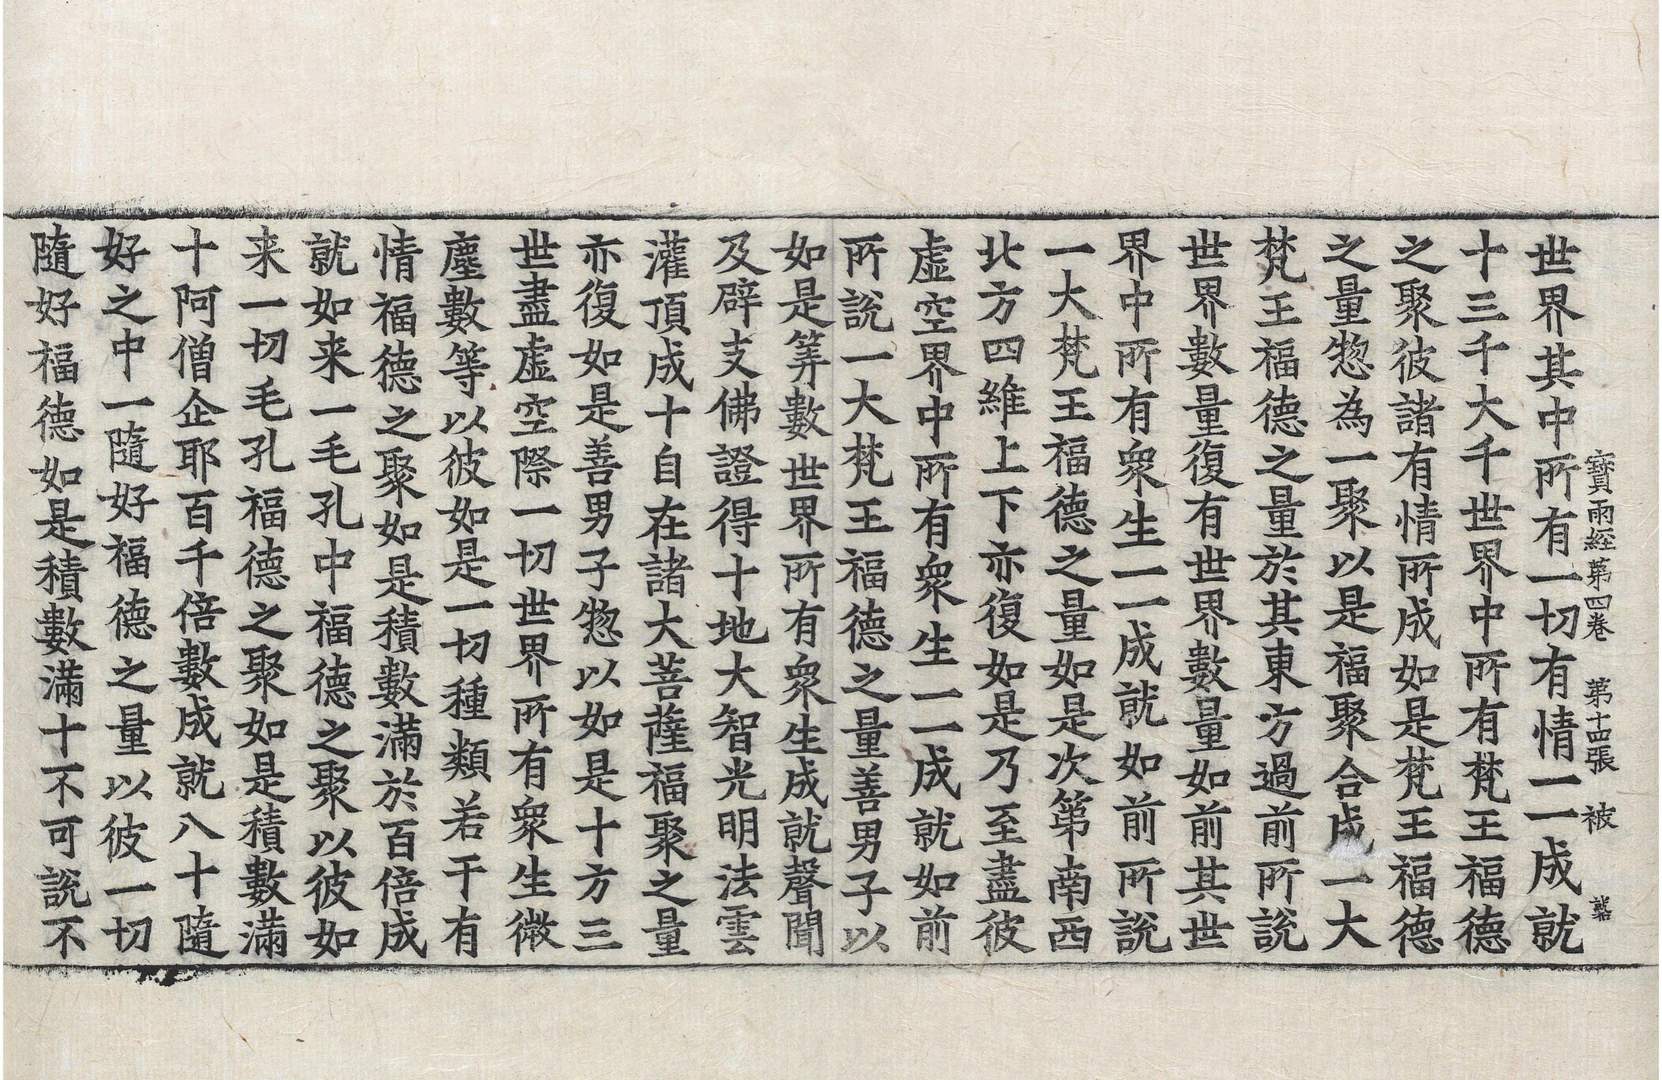 寶雨經第四卷　第十四張　被
世界其中所有一切有情一一成就
十三千大千世界中所有梵王福德
之聚彼諸有情所成如是梵王福德
之量惣為一聚以是福聚合成一大
梵王福德之量於其東方過前所說
世界數量復有世界數量如前其世
界中所有衆生一一成就如前所說
一大梵王福德之量如是次第南西
北方四維上下亦復如是乃至盡彼
虛空界中所有衆生一一成就如前
所說一大梵王福德之量善男子以
如是筭數世界所有衆生成就聲聞
及辟支佛證得十地大智光明法雲
灌頂成十自在諸大菩薩福聚之量
亦復如是善男子惣以如是十方三
世盡虛空際一切世界所有衆生微
塵數等以彼如是一切種類若干有
情福德之聚如是積數滿於百倍成
就如来一毛孔中福德之聚以彼如
来一切毛孔福德之聚如是積數滿
十阿僧企耶百千倍數成就八十隨
好之中一隨好福德之量以彼一切
隨好福德如是積數滿十不可說不